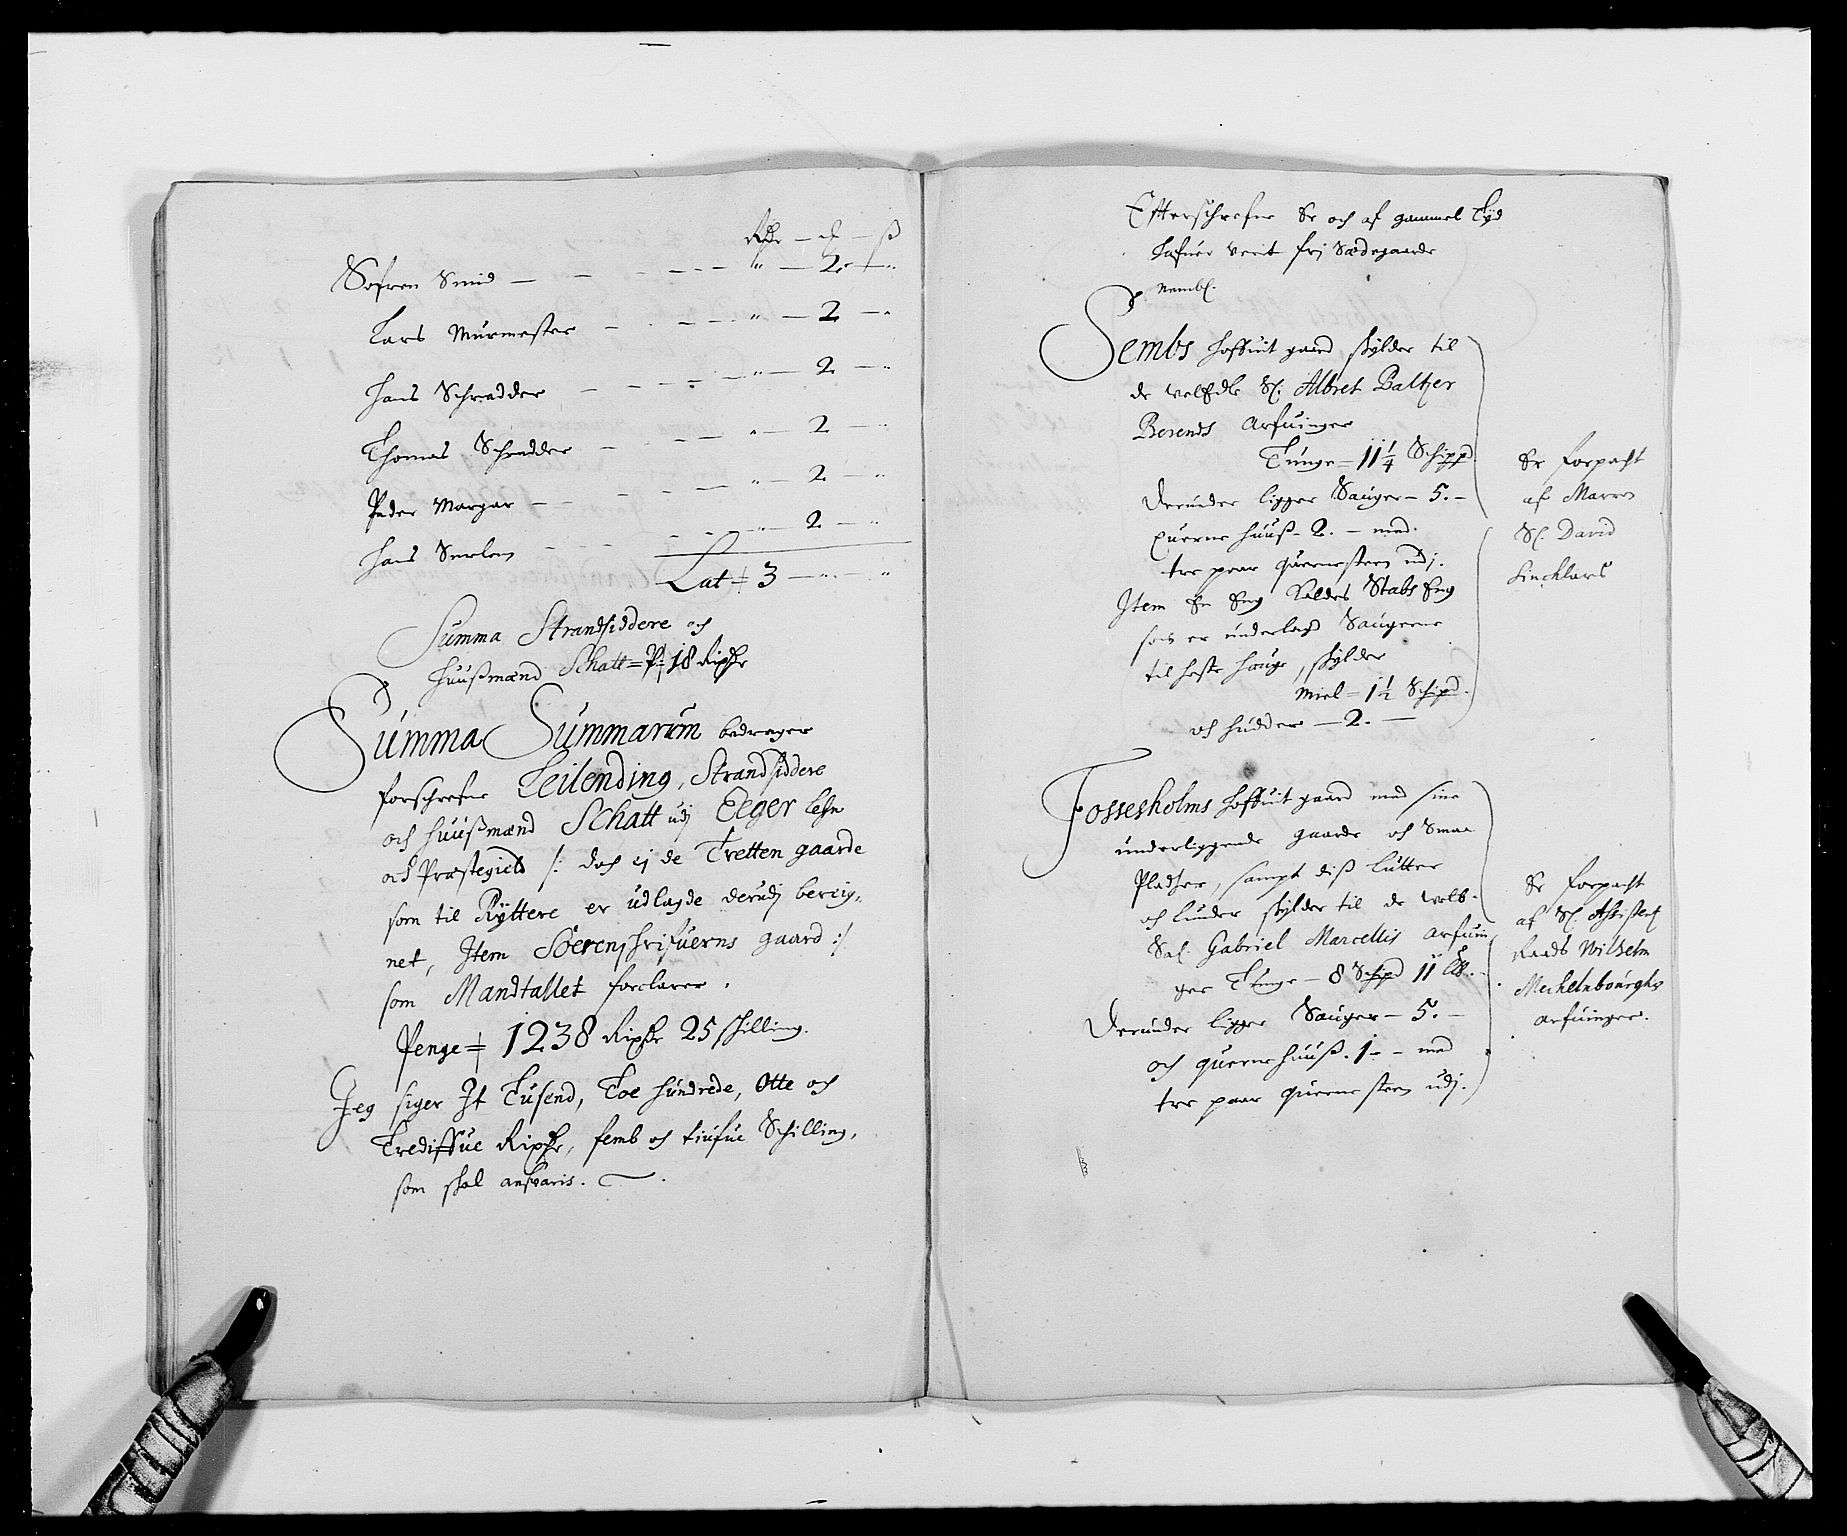 Rdr — ort — ß
Sofren Smid — — — — — " — 2 — "
Lars Murmester — — — — " — 2 — "
Hans Schredder — — — — " — 2 — "
Thomas Schredder — — — " — 2 — "
Peder Margar — — — — " — 2 — "
Hans — — — — " — 2 — "
Lat = 3 — " — "
Summa Strandsiddere och
Huußmænd Schatt = P: 18 Rixdr
Summa Summarum bedrager
forschrefne Leilending, Strandsiddere
och Huußmænd Schatt udj Eeger lehn
och Præstegield /: doch ej de Tretten gaarde
som til Ryttere er udlagde derudj bereig,
net, Item Sörenschrifuerns gaard :/
som Mandtallet forclarer.
Penge = 1238 Rixdr 25 schilling.
Jeg siger It Tusend, Toe hundrede, Otte och
Trediffue Rixdr, femb och tiufue Schilling,
som skal ansvaris.
Efterschrefne Er och af gammel Tyd
hafuer verit frj Sædegaarde
Nembl.
Sembs Hoffuit gaard skylder til
de welEdle Sl: Albret Baltzer
Berends Arfuinger
Tunge = 11 1/4 Schippd
Derunder ligger Sauger — 5. —
quernehuuß — 2. — med
tre paar quernesteen udj.
Item En Eng kaldes Stabs Eng
som er underlagd Saugerne
til heste hauge, skylder
Miel = 1 1/2 Schipd.
och hudder — 2. —
Er forpacht
af Maren
Sl: David
Sinchlars
Fossesholms Hoffuit gaard med sine
underliggende gaarde och Smaa
Pladtzer, sampt diß lutter
och lunder skylder til de welb.
Sal. Gabriel Marcellis arfuin
ger Tunge — 8 Schipd 11 Lß. —
Derunder ligger Sauger — 5. —
och quernehuuß. 1. — med
tre paar quernesteen udj.
Er forpacht
af Sl.
Raads Wilhelm
Mechelnbourghs
arfuinger.